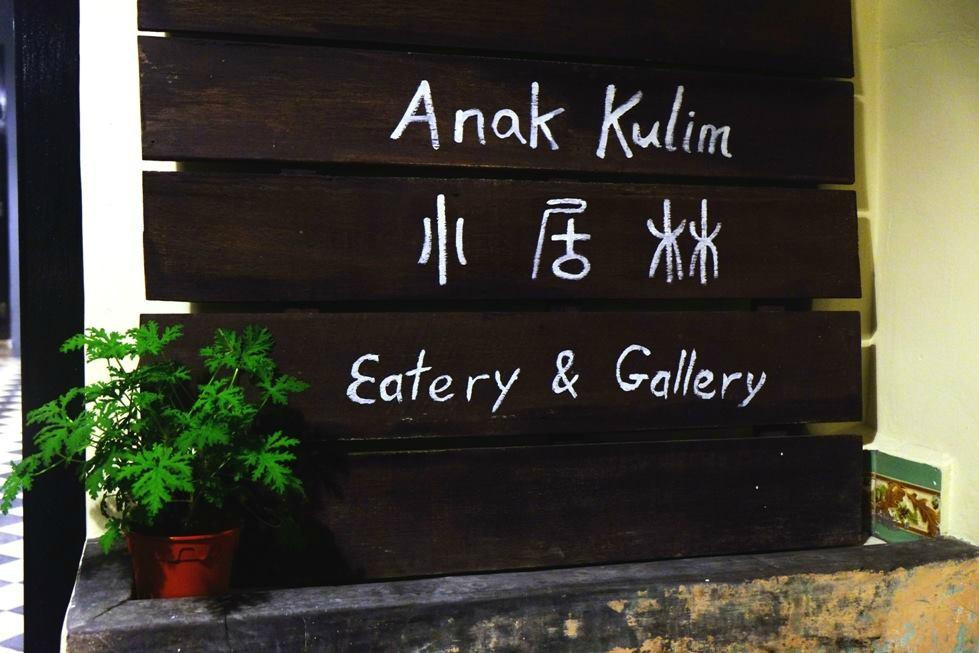 Anak Kulim
小居林
Eatery & Gallery